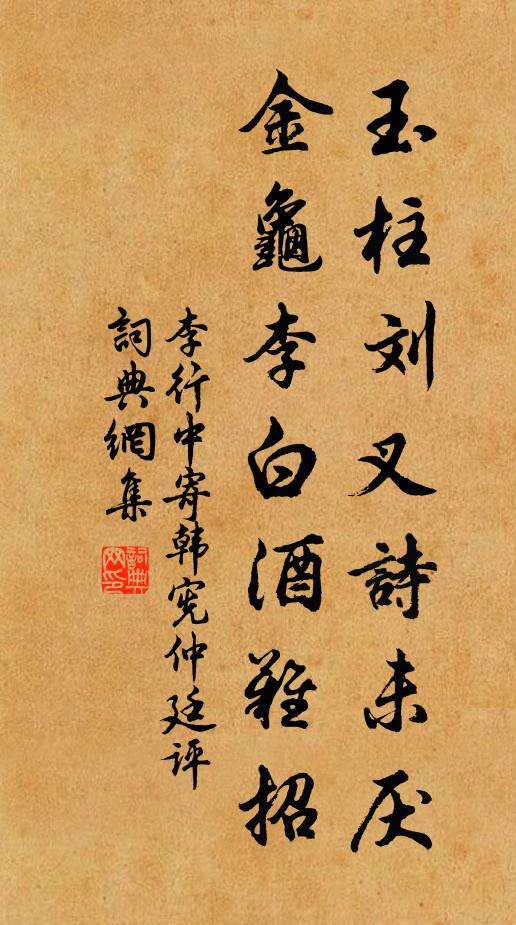 玉柱刘叉詩未厌
金龜李白酒难招
李行中寄韩宪仲廷评
詞典網集
詞典网印